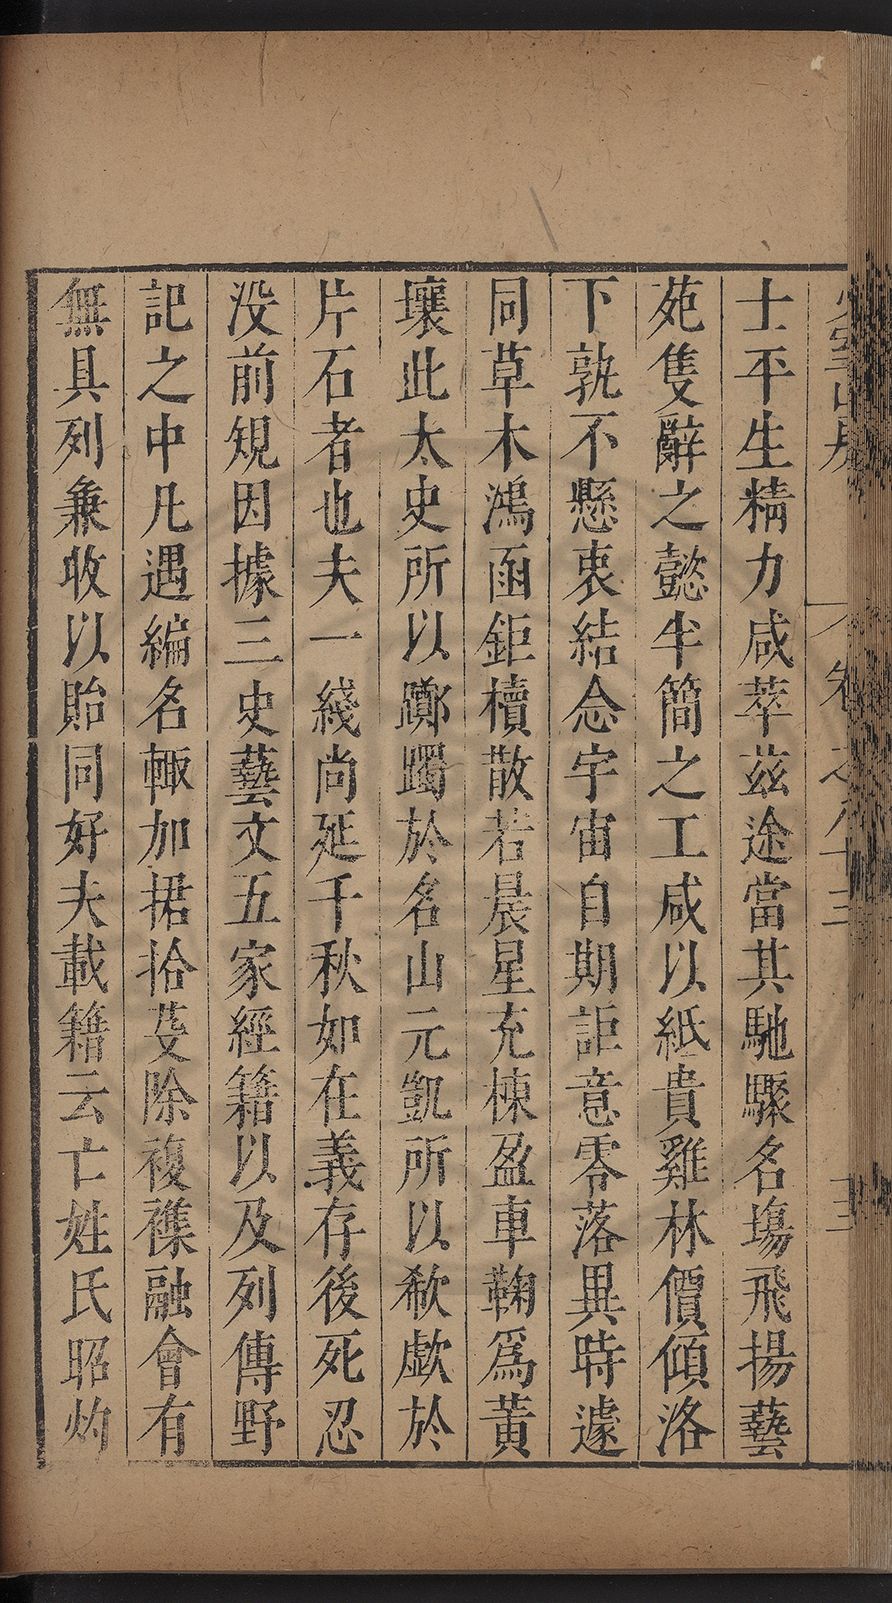 士平生精力咸萃茲途當其馳驟名塲飛揚藝
苑隻辭之懿半簡之工咸以紙貴雞林價傾洛
下孰不懸衷結念宇宙自期詎意零落異時遽
同草木鴻函鉅櫝散若晨星充棟盈車鞠爲黃
壤此太史所以躑躅於名山元凱所以欷歔於
片石者也夫一綫尚延千秋如在義存後死忍
没前規因據三史藝文五家經籍以及列傳野
記之中凡遇編名輙加捃拾芟除複襍融會有
無具列兼收以貽同好夫載籍云亡姓氏昭灼